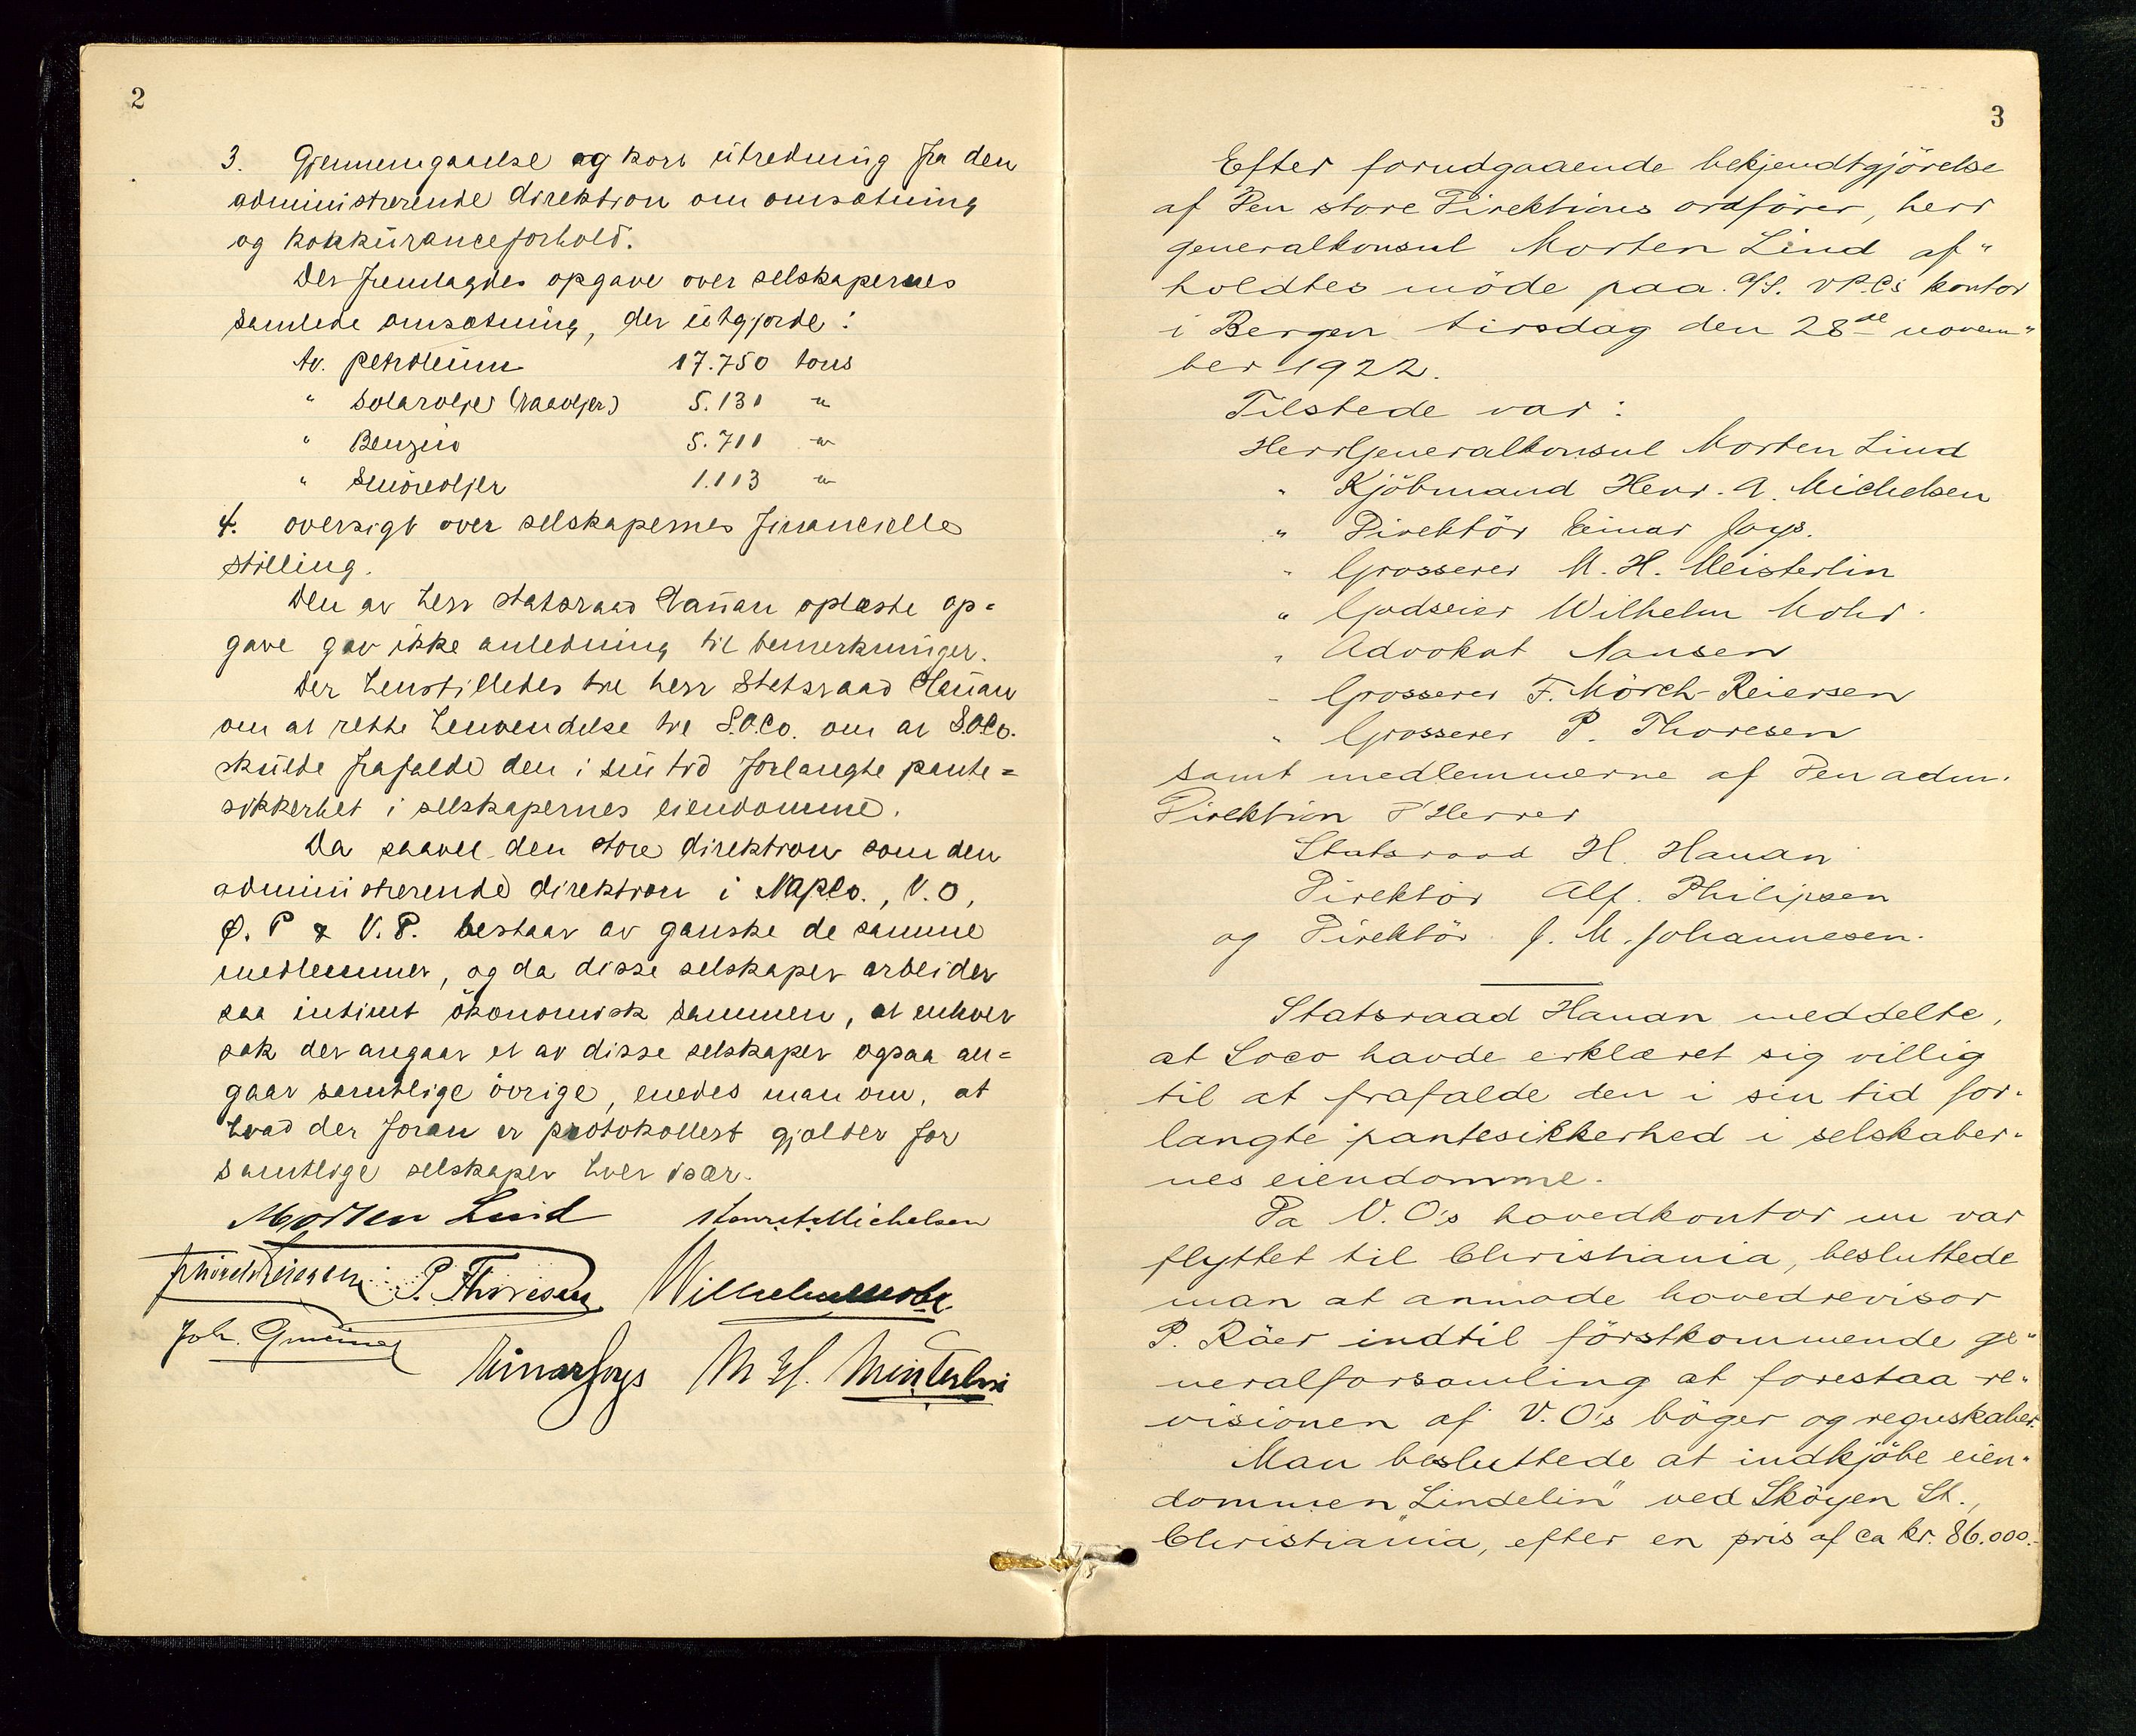 2
3. Gjennemgaaelse og kort utredning fra den
administrerende direktion om omsætning
og konkuranceforhold.
Der fremlagdes opgave over selskapernes
samlede omsætning, der utgjorde:
Av. petroleum 17.750 tons
" Solarolje (Raaoljer) 5.131 "
" Benzin 5.711 "
" Smöreoljer 1.113 "
4. oversigt over selskapernes financielle
stilling.
Den av herr statsraad Hauan oplæste op=
gave gav ikke anledning til bemerkninger.
Der henstilledes til herr Statsraad Hauan
om at rette henvendelse til S.O.Co. om at S.O.Co.
skulde frafalde den i sin tid forlangte pante=
sikkerhet i selskapernes eiendomme.
Da saavel den store direktion som den
administrerende direktion i Napco., V.O,
Ø.P & V.P. bestaar av ganske de samme
medlemmer, og da disse selskaper arbeider
saa intimt ökonomisk sammen, at enhver
sak der angaar et av disse selskaper ogsaa an=
gaar samtlige övrige, enedes man om, at
hvad der foran er protokollert gjælder for
samtlige selskaper hver især.
Morten Lind Henr. A. Michelsen
F Mörch Reiersen P. Thoresen Wilhelm Mohr
Joh.
Einar Joys M H. Meisterlin
3
Efter forudgaaende bekjendtgjörelse
af Den store Direktions ordförer, herr
generalkonsul Morten Lind af"
holdtes möde paa A/S. VPC's kontor
i Bergen tirsdag den 28de novem"
ber 1922.
Tilstede var:
Herr Generalkonsul Morten Lind
" Kjöbmand Henr. A. Michelsen
" Direktör Einar Joys.
" Grosserer M. H. Meisterlin
" Godseier Wilhelm Mohr.
" Advokat Nansen
" Grosserer F. Mörch-Reiersen
" Grosserer P. Thoresen
samt medlemmerne af Den adm.
Direktion d'Herrer
Statsraad H. Hauan
Direktör Alf. Philipsen
og Direktör J. M. Johannesen.
Statsraad Hauan meddelte,
at Soco havde erklæret sig villig
til at frafalde den i sin tid for-
langte pantesikkerhed i selskaber-
nes eiendomme.
Da V.O's hovedkontor nu var
flyttet til Christiania, besluttede
man at anmode hovedrevisor
P. Räer indtil förstkommende ge"
neralforsamling at forestaa re"
visionen af V.O's böger og regnskaber.
Man besluttede at indkjöbe eien"
dommen "Lindelin" ved Sköyen St.,
Christiania, efter en pris af ca kr. 86.000.-